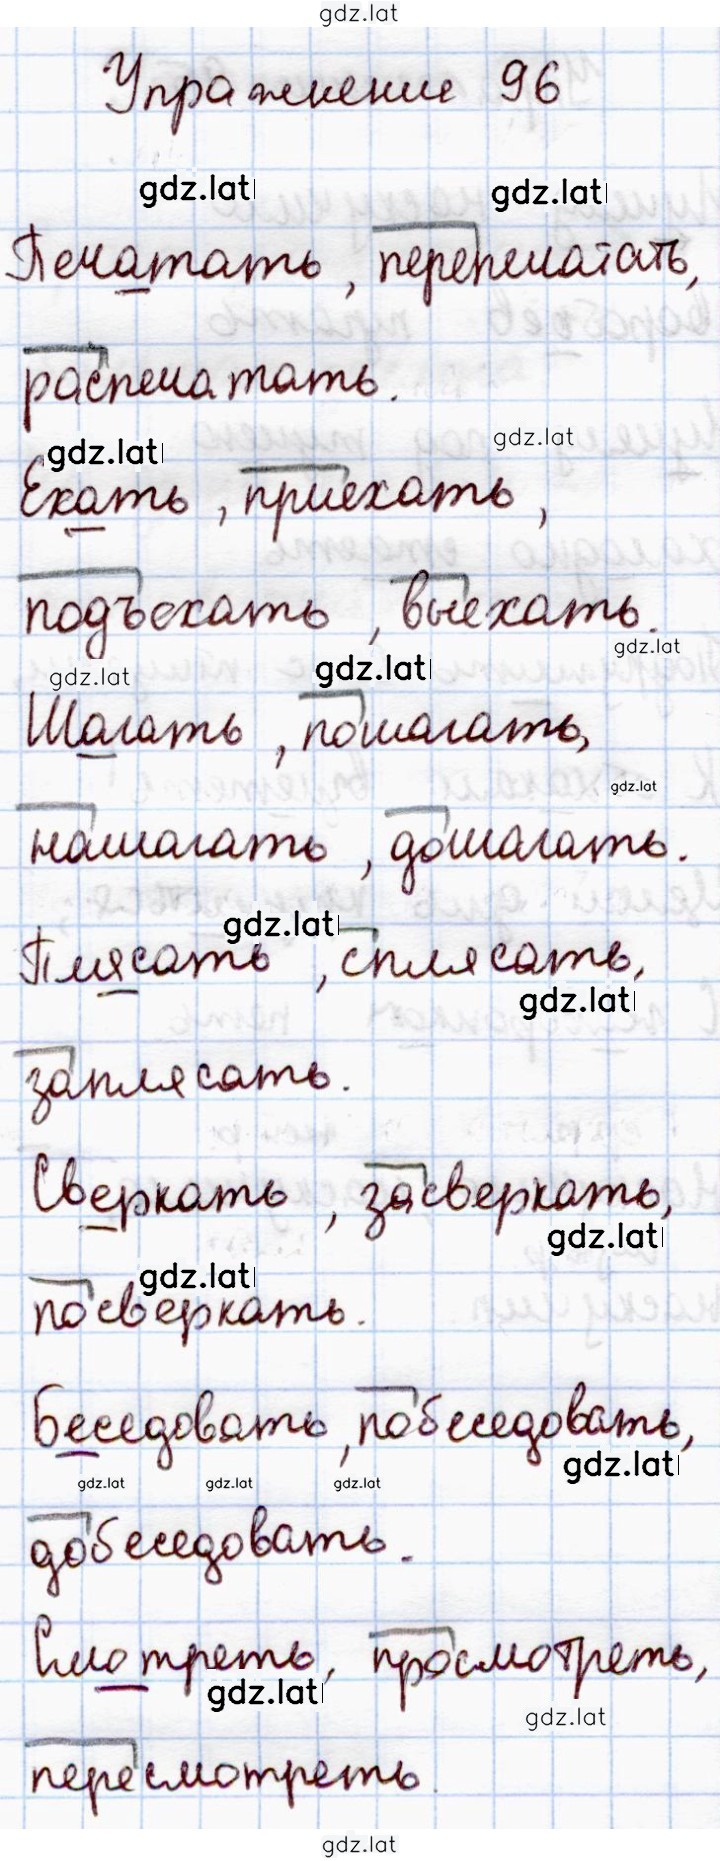 gdz.lat
Упражнение 96
gdz.lat gdz.lat
Печатать, перепечатать,
распечатать.
gdz.lat gdz.lat
Ехать, приехать,
подъехать, выехать.
gdz.lat
gdz.lat gdz.lat
Шагать, пошагать,
gdz.lat
нашагать, дошагать.
gdz.lat
Плясать, сплясать,
gdz.lat
заплясать.
Сверкать, засверкать,
gdz.lat
gdz.lat
посверкать.
Беседовать, побеседовать,
gdz.lat
gdz.lat gdz.lat gdz.lat
добеседовать.
Смотреть, просмотреть,
gdz.lat
gdz.lat
пересмотреть.
gdz.lat